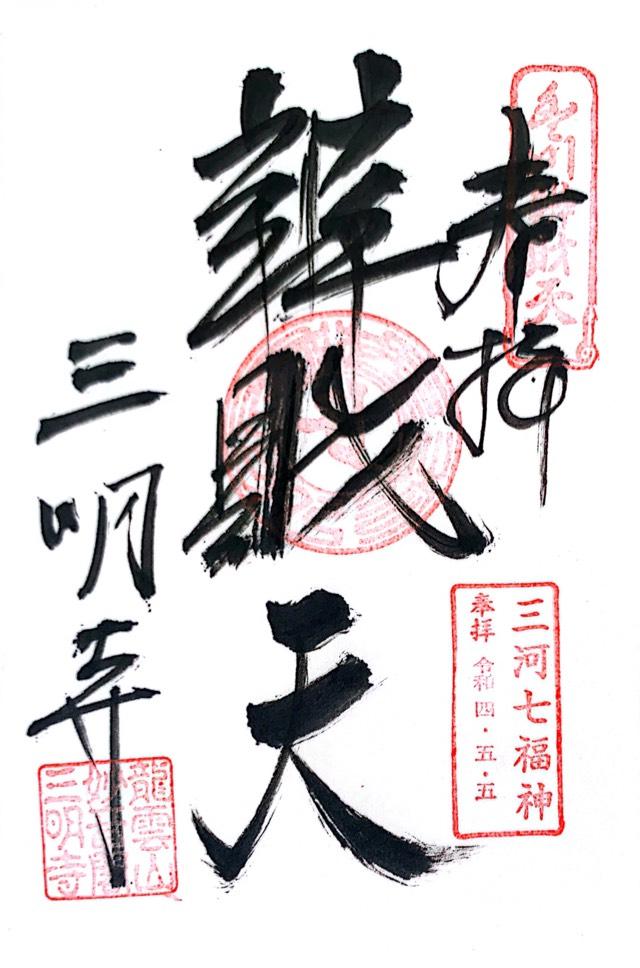 奉拝
辨財天
三河七福神
奉拝 令和四・五・五
三明寺
龍雲山
三明寺